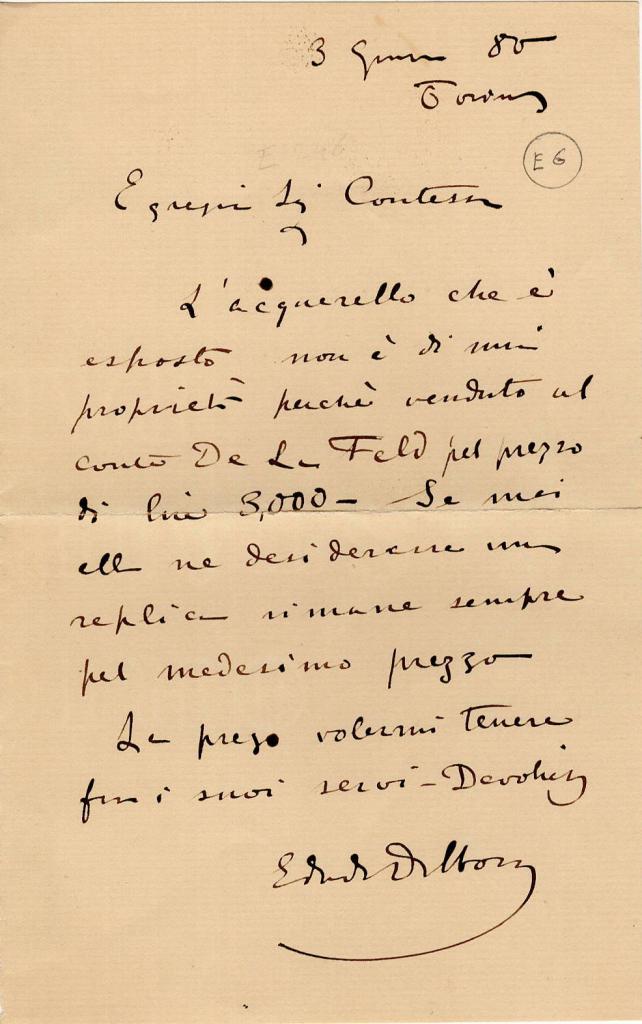 3 Giugno 80
Torino
E 6
Egregia Sig Contessa
L'acquerello che è
esposto non è di mia
proprietà perchè venduto al
conte De La Feld pel prezzo
di lire 3,000 - Se mai
ella ne desiderasse una
replica rimane sempre
pel medesimo prezzo
La prego volermi tenere
fra i suoi servi - Devotiss